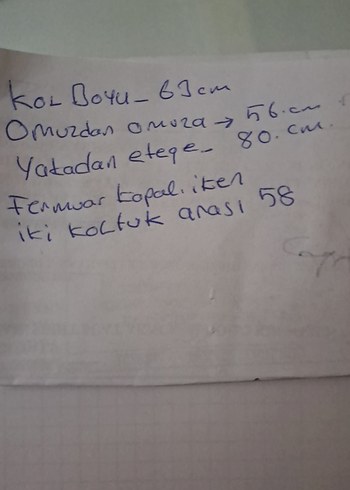 Kol Boyu - 63 cm
Omuzdan omuza → 56.cm
Yakadan eteğe - 80.cm.
Fermuar kapalı.iken
iki koltuk arası 58